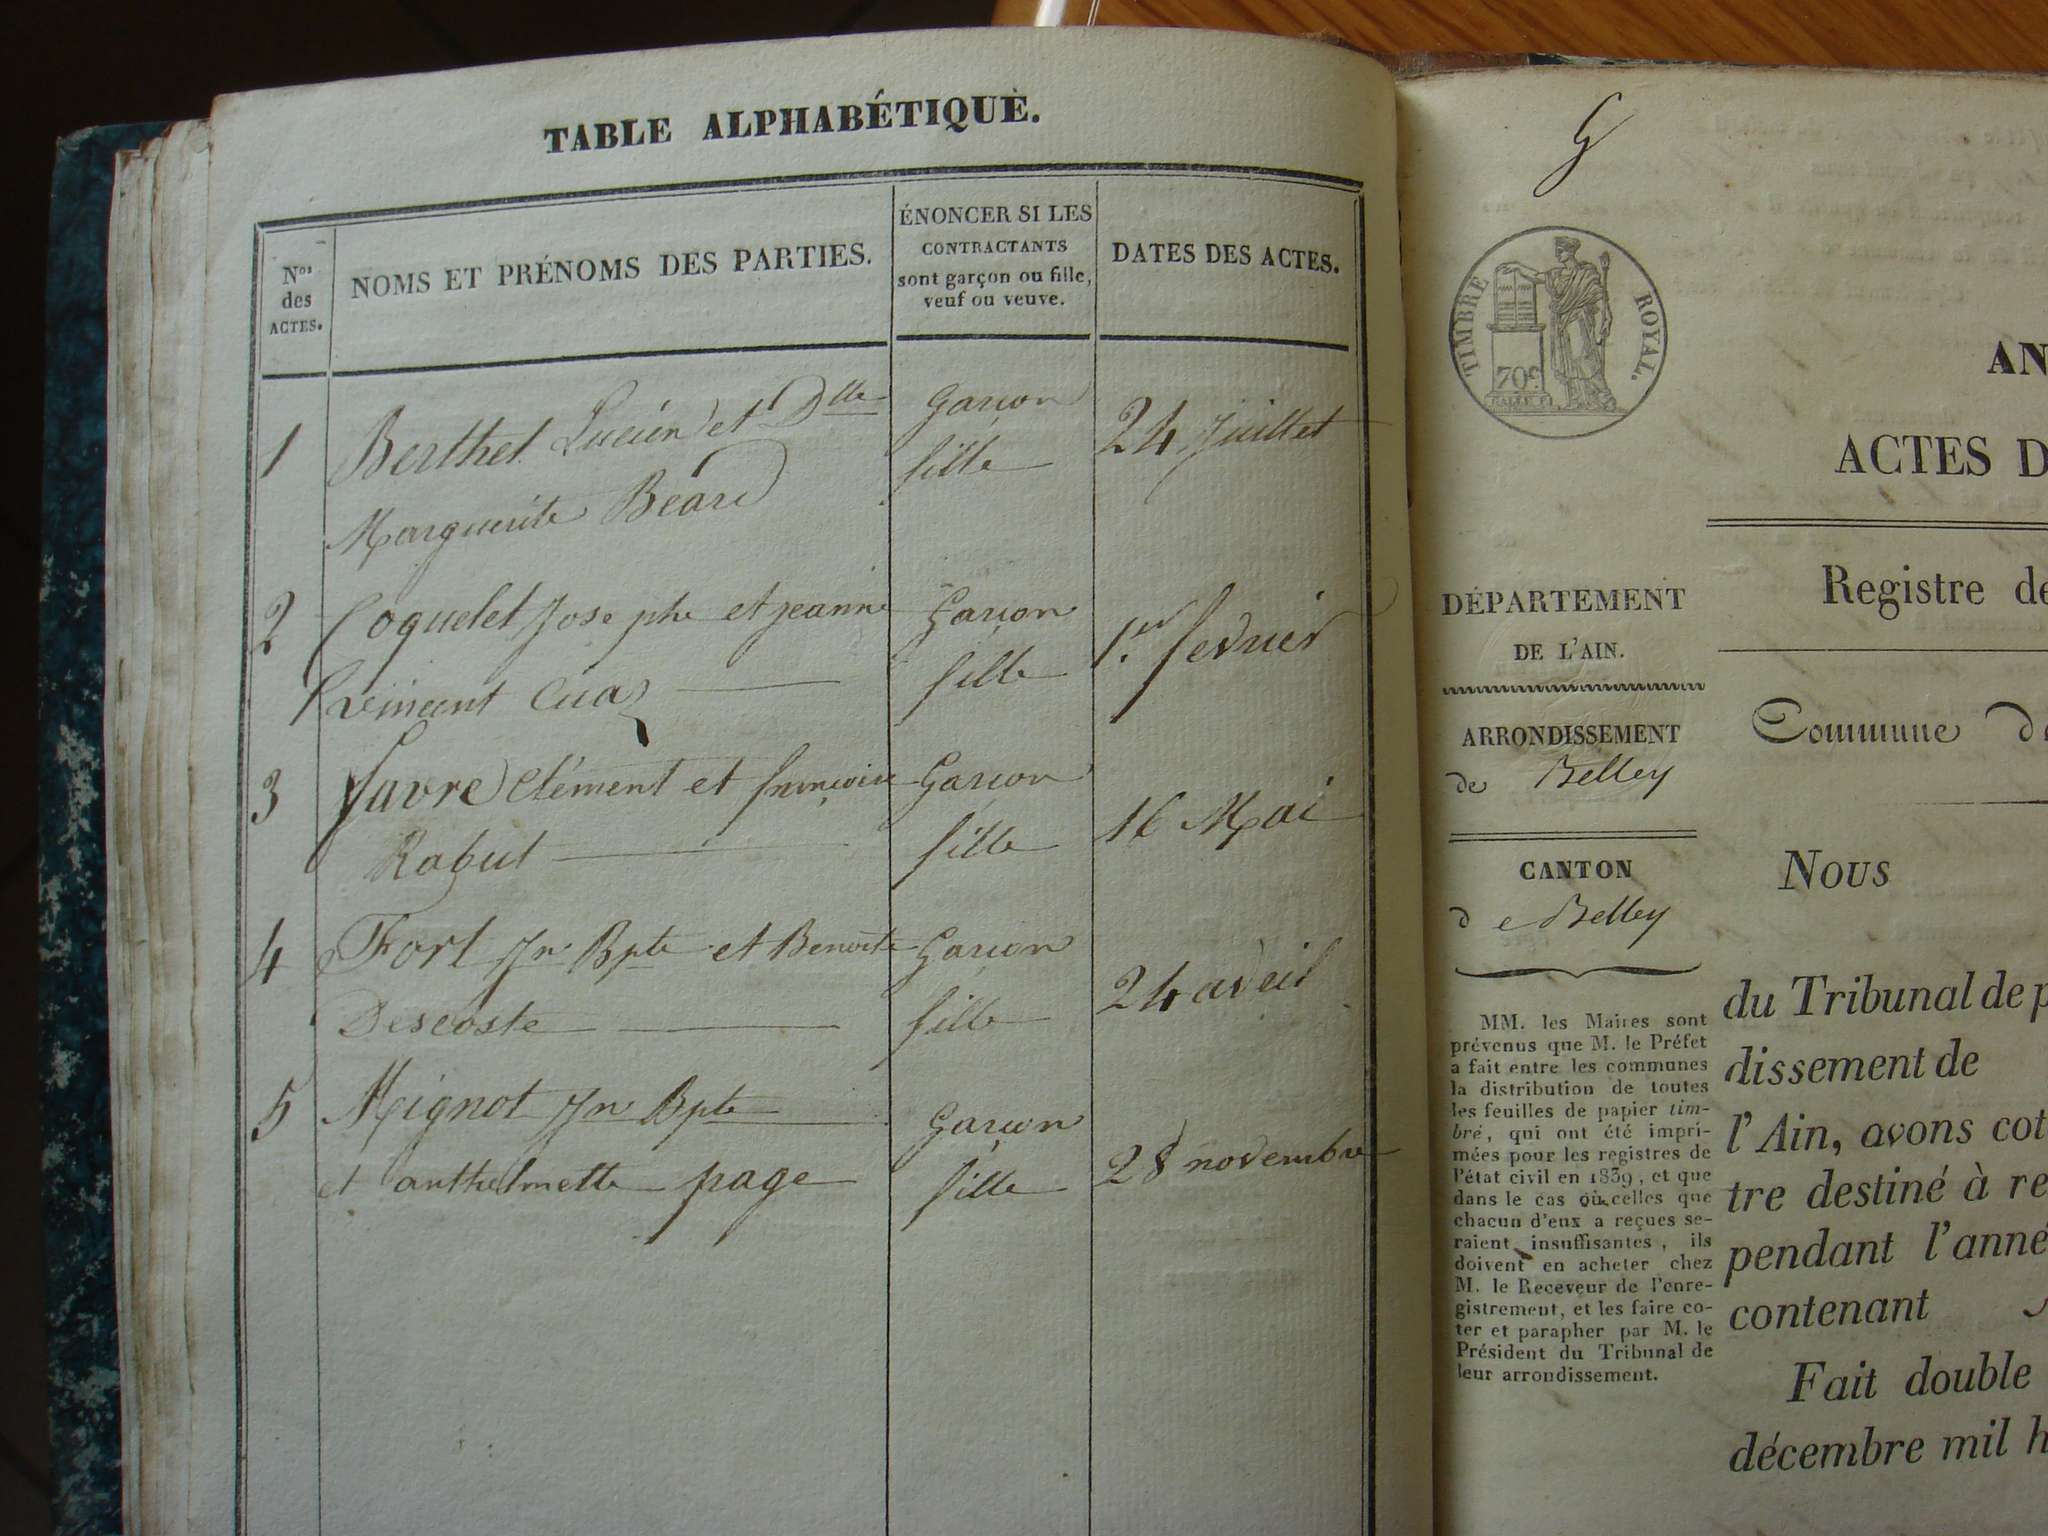 TABLE ALPHABÉTIQUE.
Nos
des
ACTES.
NOMS ET PRÉNOMS DES PARTIES.
ÉNONCER SI LES
CONTRACTANTS
sont garçon ou fille,
veuf ou veuve.
DATES DES ACTES.
1 Berthet Lucien et Dlle garçon 24 juillet
Marguerite Béard fille
2 Coquelet Josephe et jeanne Garçon 1er fevrier
vincent Cuaz fille
3 favre Clément et françoise Garçon 16 Mai
Rabut fille
4 Fort Jn Bpte et Benoite Garçon 24 avril
Descoste fille
5 Meignot Jn Bpte Garçon 28 novembre
et anthelmette page fille
TIMBRE ROYAL.
70c
AN
ACTES D
DÉPARTEMENT
DE L'AIN.
Registre de
ARRONDISSEMENT
de Belley
Commune de
CANTON
de Belley
Nous
MM. les Maires sont
prévenus que M. le Préfet
a fait entre les communes
la distribution de toutes
les feuilles de papier tim-
bré, qui ont été impri-
mées pour les registres de
l'état civil en 1839, et que
dans le cas où celles que
chacun d'eux a reçues se-
raient insuffisantes, ils
doivent en acheter chez
M. le Receveur de l'enre-
gistrement, et les faire co-
ter et parapher par M. le
Président du Tribunal de
leur arrondissement.
du Tribunal de p
dissement de
l'Ain, avons cot
tre destiné à re
pendant l'anné
contenant
Fait double
décembre mil h